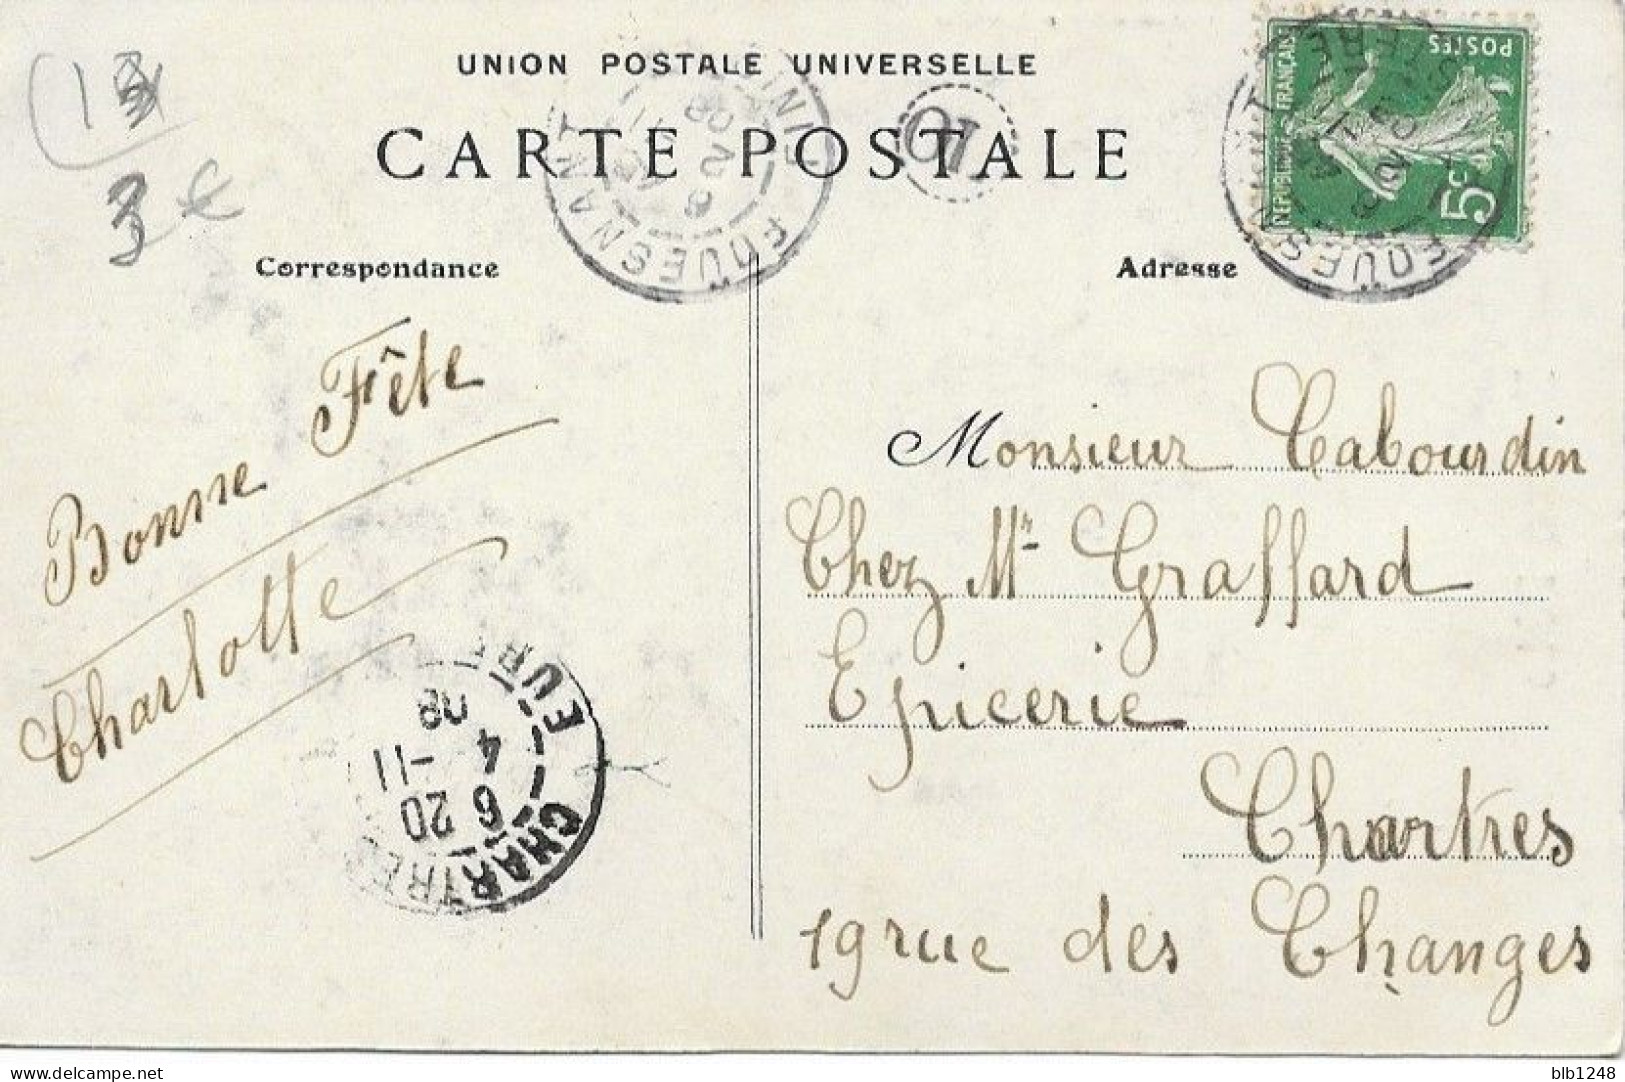 UNION POSTALE UNIVERSELLE
CARTE POSTALE
Correspondance
Adresse
13
3 €
Bonne Fête
Charlotte
Monsieur Cabourdin
Chez Mr Graffard
Epicerie
Chartres
19 rue des Changes
REPUBLIQUE FRANÇAISE
POSTES
5c
FOUESNANT
FINISTERE
FOUESNANT
CHARTRES
EURE
6 20
4 -11
08
delcampe.net
blb1248